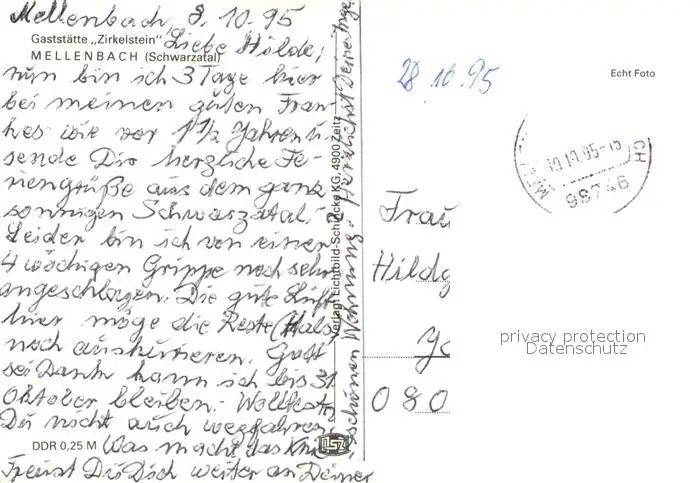 Mellenbach, 9.10.95
Gaststätte „Zirkelstein"
Liebe Hilde,
MELLENBACH (Schwarzatal)
nun bin ich 3 Tage hier
bei meinen guten Fran-
kes wie vor 1 1/2 Jahren u.
sende Dir herzliche Fe-
riengrüße aus dem ganz
sonnigen Schwarzatal.
Leider bin ich von einer
4 wöchigen Grippe noch sehr
angeschlagen. Die gute Luft
hier möge die Reste (Hals)
noch auskurieren. Gott
sei Dank kann ich bis 31.
Oktober bleiben. - Wolltest
Du nicht auch wegfahren,
DDR 0,25 M
Was macht das Knie
Freust Du Dich weiter an Deiner
schönen Wohnung. Herzlichst Deine Inge
Verlag: Lichtbild-Schincke KG, 4900 Zeitz
28.10.95
Echt Foto
98746
Frau
Hildg
080
privacy protection
Datenschutz